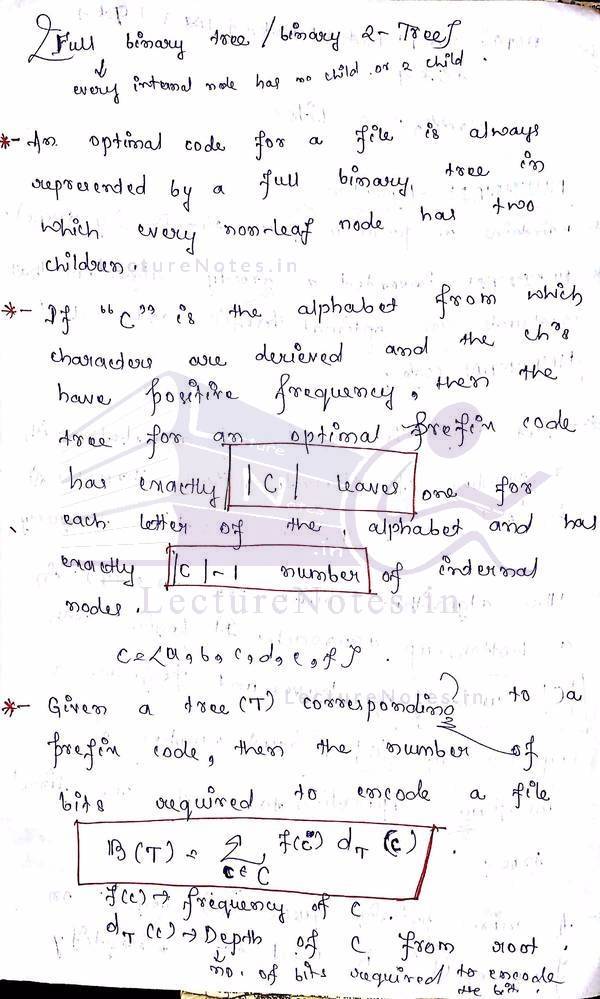 {Full binary tree / binary 2-Tree}
↓
every internal node has no child or 2 child.
*- An optimal code for a file is always
represented by a full binary tree in
which every non-leaf node has two
children.
LectureNotes.in
*- If "C" is the alphabet from which
characters are derieved and the ch's
have positive frequency, then the
tree for an optimal prefix code
has exactly |C| leaves one for
each letter of the alphabet and has
exactly |C|-1 number of internal
nodes.
LectureNotes.in
C = {a, b, c, d, e, f}.
LectureNotes.in
*- Given a tree (T) corresponding to a
prefix code, then the number of
bits required to encode a file
B(T) = Σ f(c) dT (c).
c∈C
f(c) → frequency of C.
dT (c) → Depth of C from root.
↓
no. of bits required to encode
the bit.